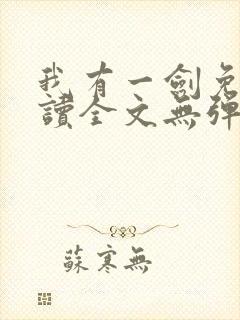 我有一劍免
讀全文無彈
蘇寒無